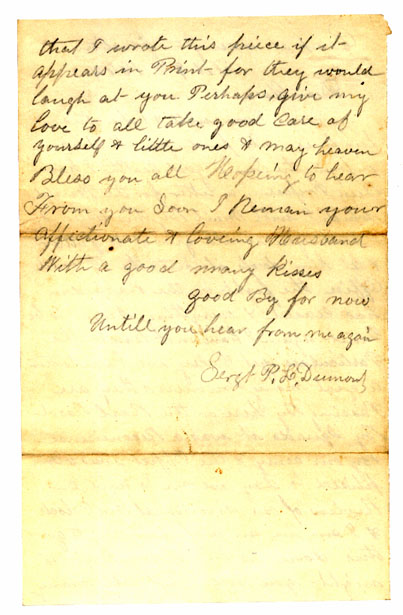 that I wrote this piece if it
appears in Print for they would
laugh at you Perhaps, give my
love to all take good Care of
yourself & little ones & may heaven
Bless you all Hopeing to hear
From you Soon I Remain your
Affictionate & loveing Husband
With a good many kisses
good By for now
Untill you hear from me again
Sergt P. L. Dumont